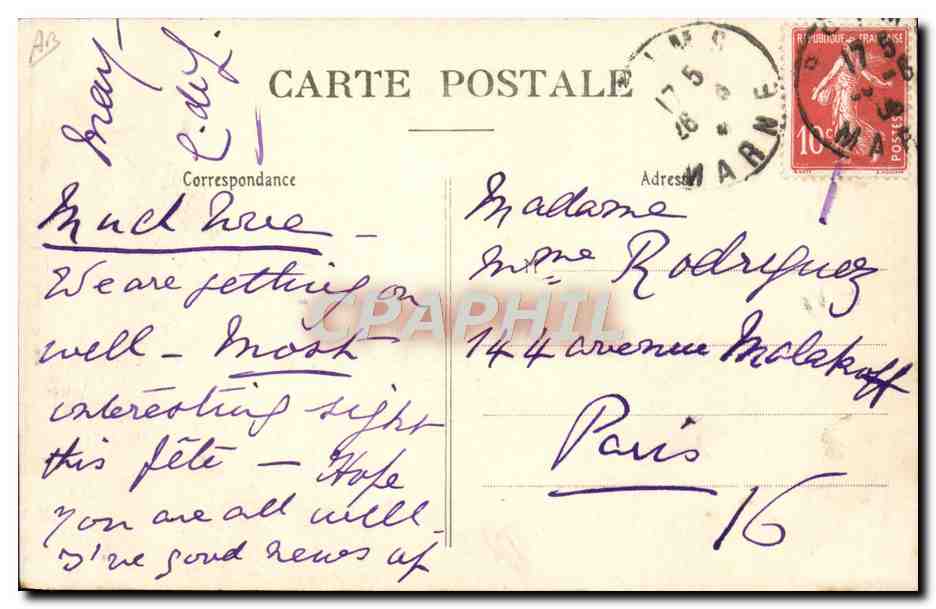 AB
CARTE POSTALE
Correspondance
Much love -
We are getting on
well - Most
interesting sight
this fête - Hope
you are all well -
I've good news of
Adresse
Madame
Mme Rodriguez
144 avenue Malakoff
Paris
16
RÉPUBLIQUE FRANÇAISE
10c
POSTES
17 5
MARNE
CPAPHIL